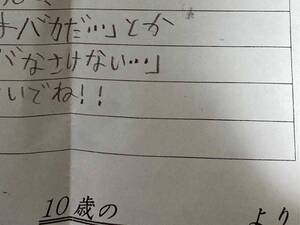 バカだ…」とか
バなさけない…」
いでね!!
10歳の より